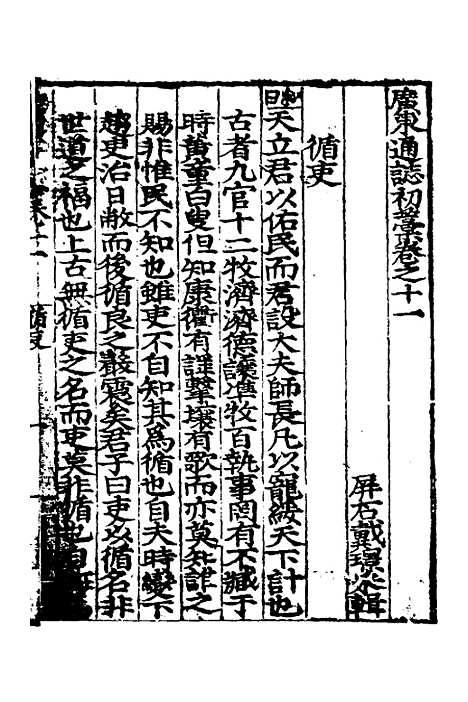 廣東通誌初藁卷之十一
屏石戴璟采輯
循吏
天立君以佑民而君設大夫師長凡以寵綏天下計也
古者九官十二牧濟濟德讓準牧百執事罔有不臧于
時黃童白叟但知康衢有謠擊壤有歌而亦莫知誰之
賜非惟民不知也雖吏不自知其為循也自夫時變下
趨吏治日敝而後循良之嚴震矣君子曰吏以循名非
世道之福也上古無循吏之名而吏莫非循也自
循吏